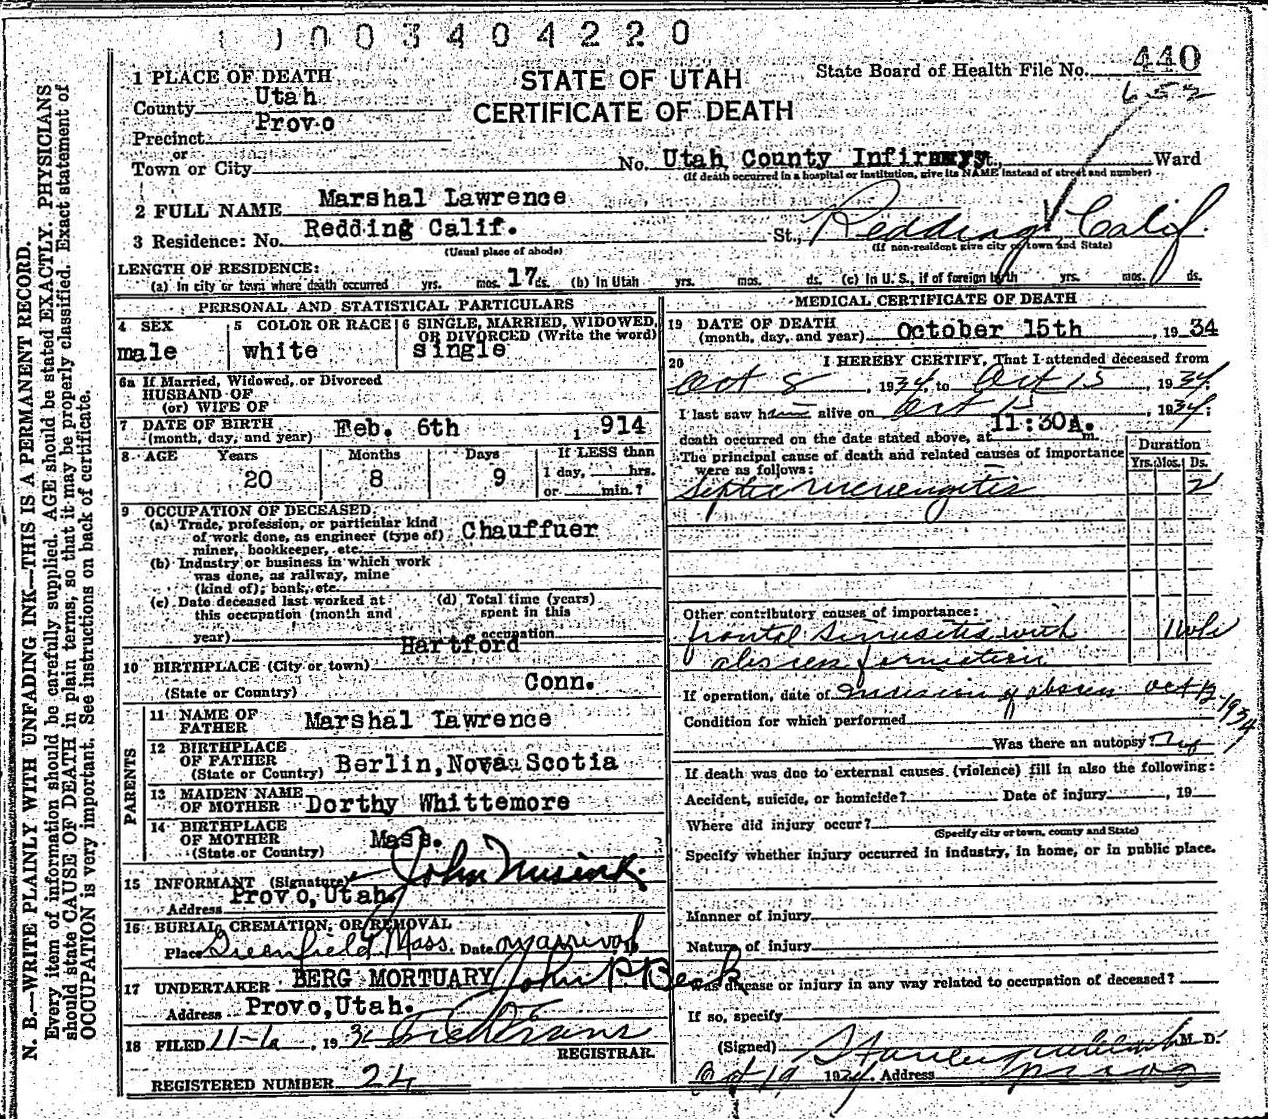 0003404220
1 PLACE OF DEATH
STATE OF UTAH
State Board of Health File No. 440
County Utah
CERTIFICATE OF DEATH
652
Precinct Provo
or
Town or City
No. Utah County Infirmry St., Ward
(If death occurred in a hospital or institution, give its NAME instead of street and number)
2 FULL NAME Marshal Lawrence
3 Residence: No. Redding Calif. St., Redding Calif.
(Usual place of abode)
(If non-resident give city or town and State)
LENGTH OF RESIDENCE:
(a) In city or town where death occurred yrs. mos. 17 ds. (b) In Utah yrs. mos. ds. (c) In U. S., if of foreign birth yrs. mos. ds.
PERSONAL AND STATISTICAL PARTICULARS
4 SEX
male
5 COLOR OR RACE
white
6 SINGLE, MARRIED, WIDOWED, OR DIVORCED (Write the word)
single
6a If Married, Widowed, or Divorced
HUSBAND OF
(or) WIFE OF
7 DATE OF BIRTH
(month, day, and year) Feb. 6th 1914
8 AGE Years Months Days If LESS than
20 8 9 1 day, hrs.
or min.?
9 OCCUPATION OF DECEASED
(a) Trade, profession, or particular kind
of work done, as engineer (type of) Chauffuer
miner, bookkeeper, etc.
(b) Industry or business in which work
was done, as railway, mine
(kind of); bank, etc.
(c) Date deceased last worked at
this occupation (month and
year)
(d) Total time (years)
spent in this
occupation
Hartford
10 BIRTHPLACE (City or town)
(State or Country) Conn.
PARENTS
11 NAME OF
FATHER Marshal Lawrence
12 BIRTHPLACE
OF FATHER Berlin, Nova Scotia
(State or Country)
13 MAIDEN NAME
OF MOTHER Dorthy Whittemore
14 BIRTHPLACE
OF MOTHER Mass.
(State or Country)
15 INFORMANT (Signature) John
Address Provo, Utah.
16 BURIAL, CREMATION, OR REMOVAL
Place Greenfield, Mass. Date on arrival
17 UNDERTAKER BERG MORTUARY John P. Beck
Address Provo, Utah.
18 FILED 11-1a, 19 REGISTRAR.
REGISTERED NUMBER 24
MEDICAL CERTIFICATE OF DEATH
19 DATE OF DEATH
(month, day, and year) October 15th 1934
20 I HEREBY CERTIFY, That I attended deceased from
Oct 8, 1934, to Oct 15, 1934;
I last saw him alive on Oct 15, 1934;
death occurred on the date stated above, at 11:30A. m.
The principal cause of death and related causes of importance
were as follows:
Duration
Yrs. Mos. Ds.
Septic meningitis 2
Other contributory causes of importance:
frontal sinusitis with
abscess formation
If operation, date of Incision of abscess Oct 12-1934
Condition for which performed
Was there an autopsy
If death was due to external causes (violence) fill in also the following:
Accident, suicide, or homicide? Date of injury, 19
Where did injury occur?
(Specify city or town, county and State)
Specify whether injury occurred in industry, in home, or in public place.
Manner of injury
Nature of injury
Was disease or injury in any way related to occupation of deceased?
If so, specify
(Signed) M. D.
Oct 19 1934 Address Provo
N. B.—WRITE PLAINLY WITH UNFADING INK—THIS IS A PERMANENT RECORD.
Every item of information should be carefully supplied. AGE should be stated EXACTLY. PHYSICIANS
should state CAUSE OF DEATH in plain terms, so that it may be properly classified. Exact statement of
OCCUPATION is very important. See instructions on back of certificate.